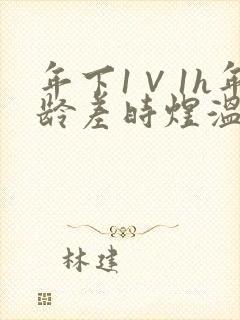 年下1V1h年
龄差时煌温
林建